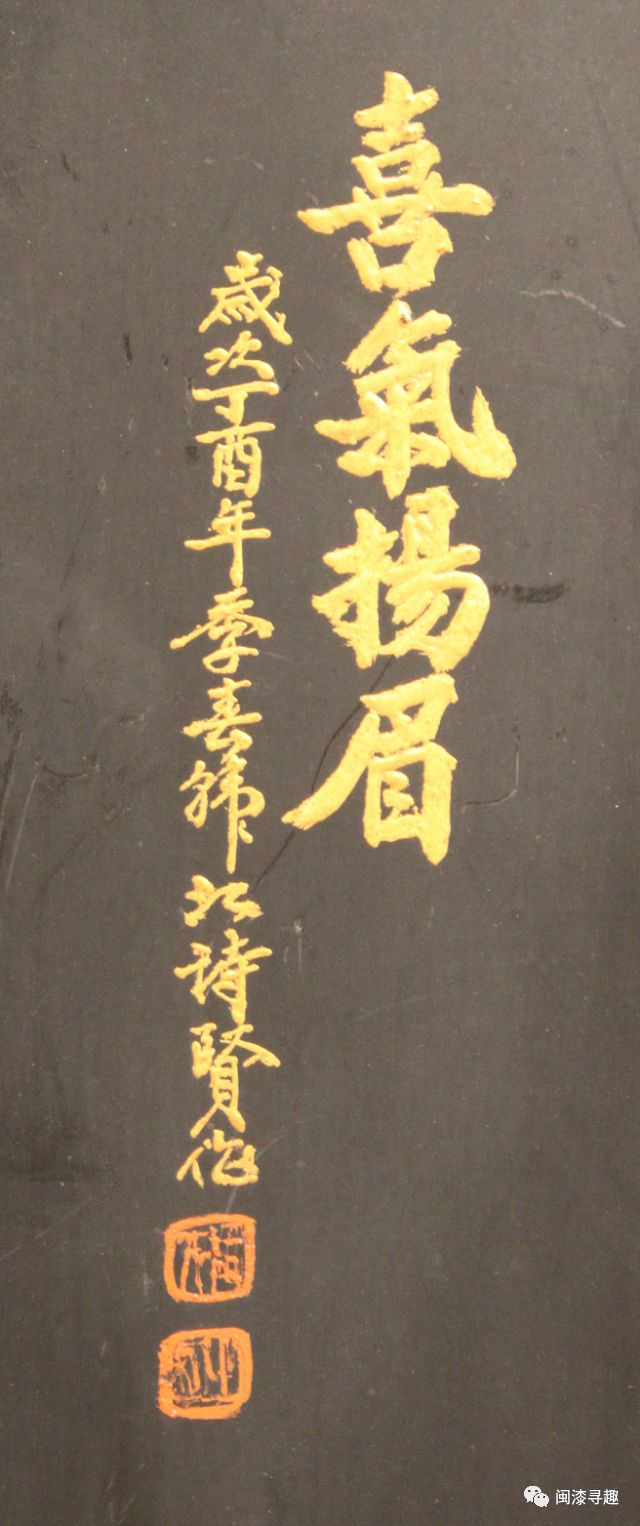 喜氣揚眉
歲次丁酉年季春 北詩賢作
闽漆寻趣